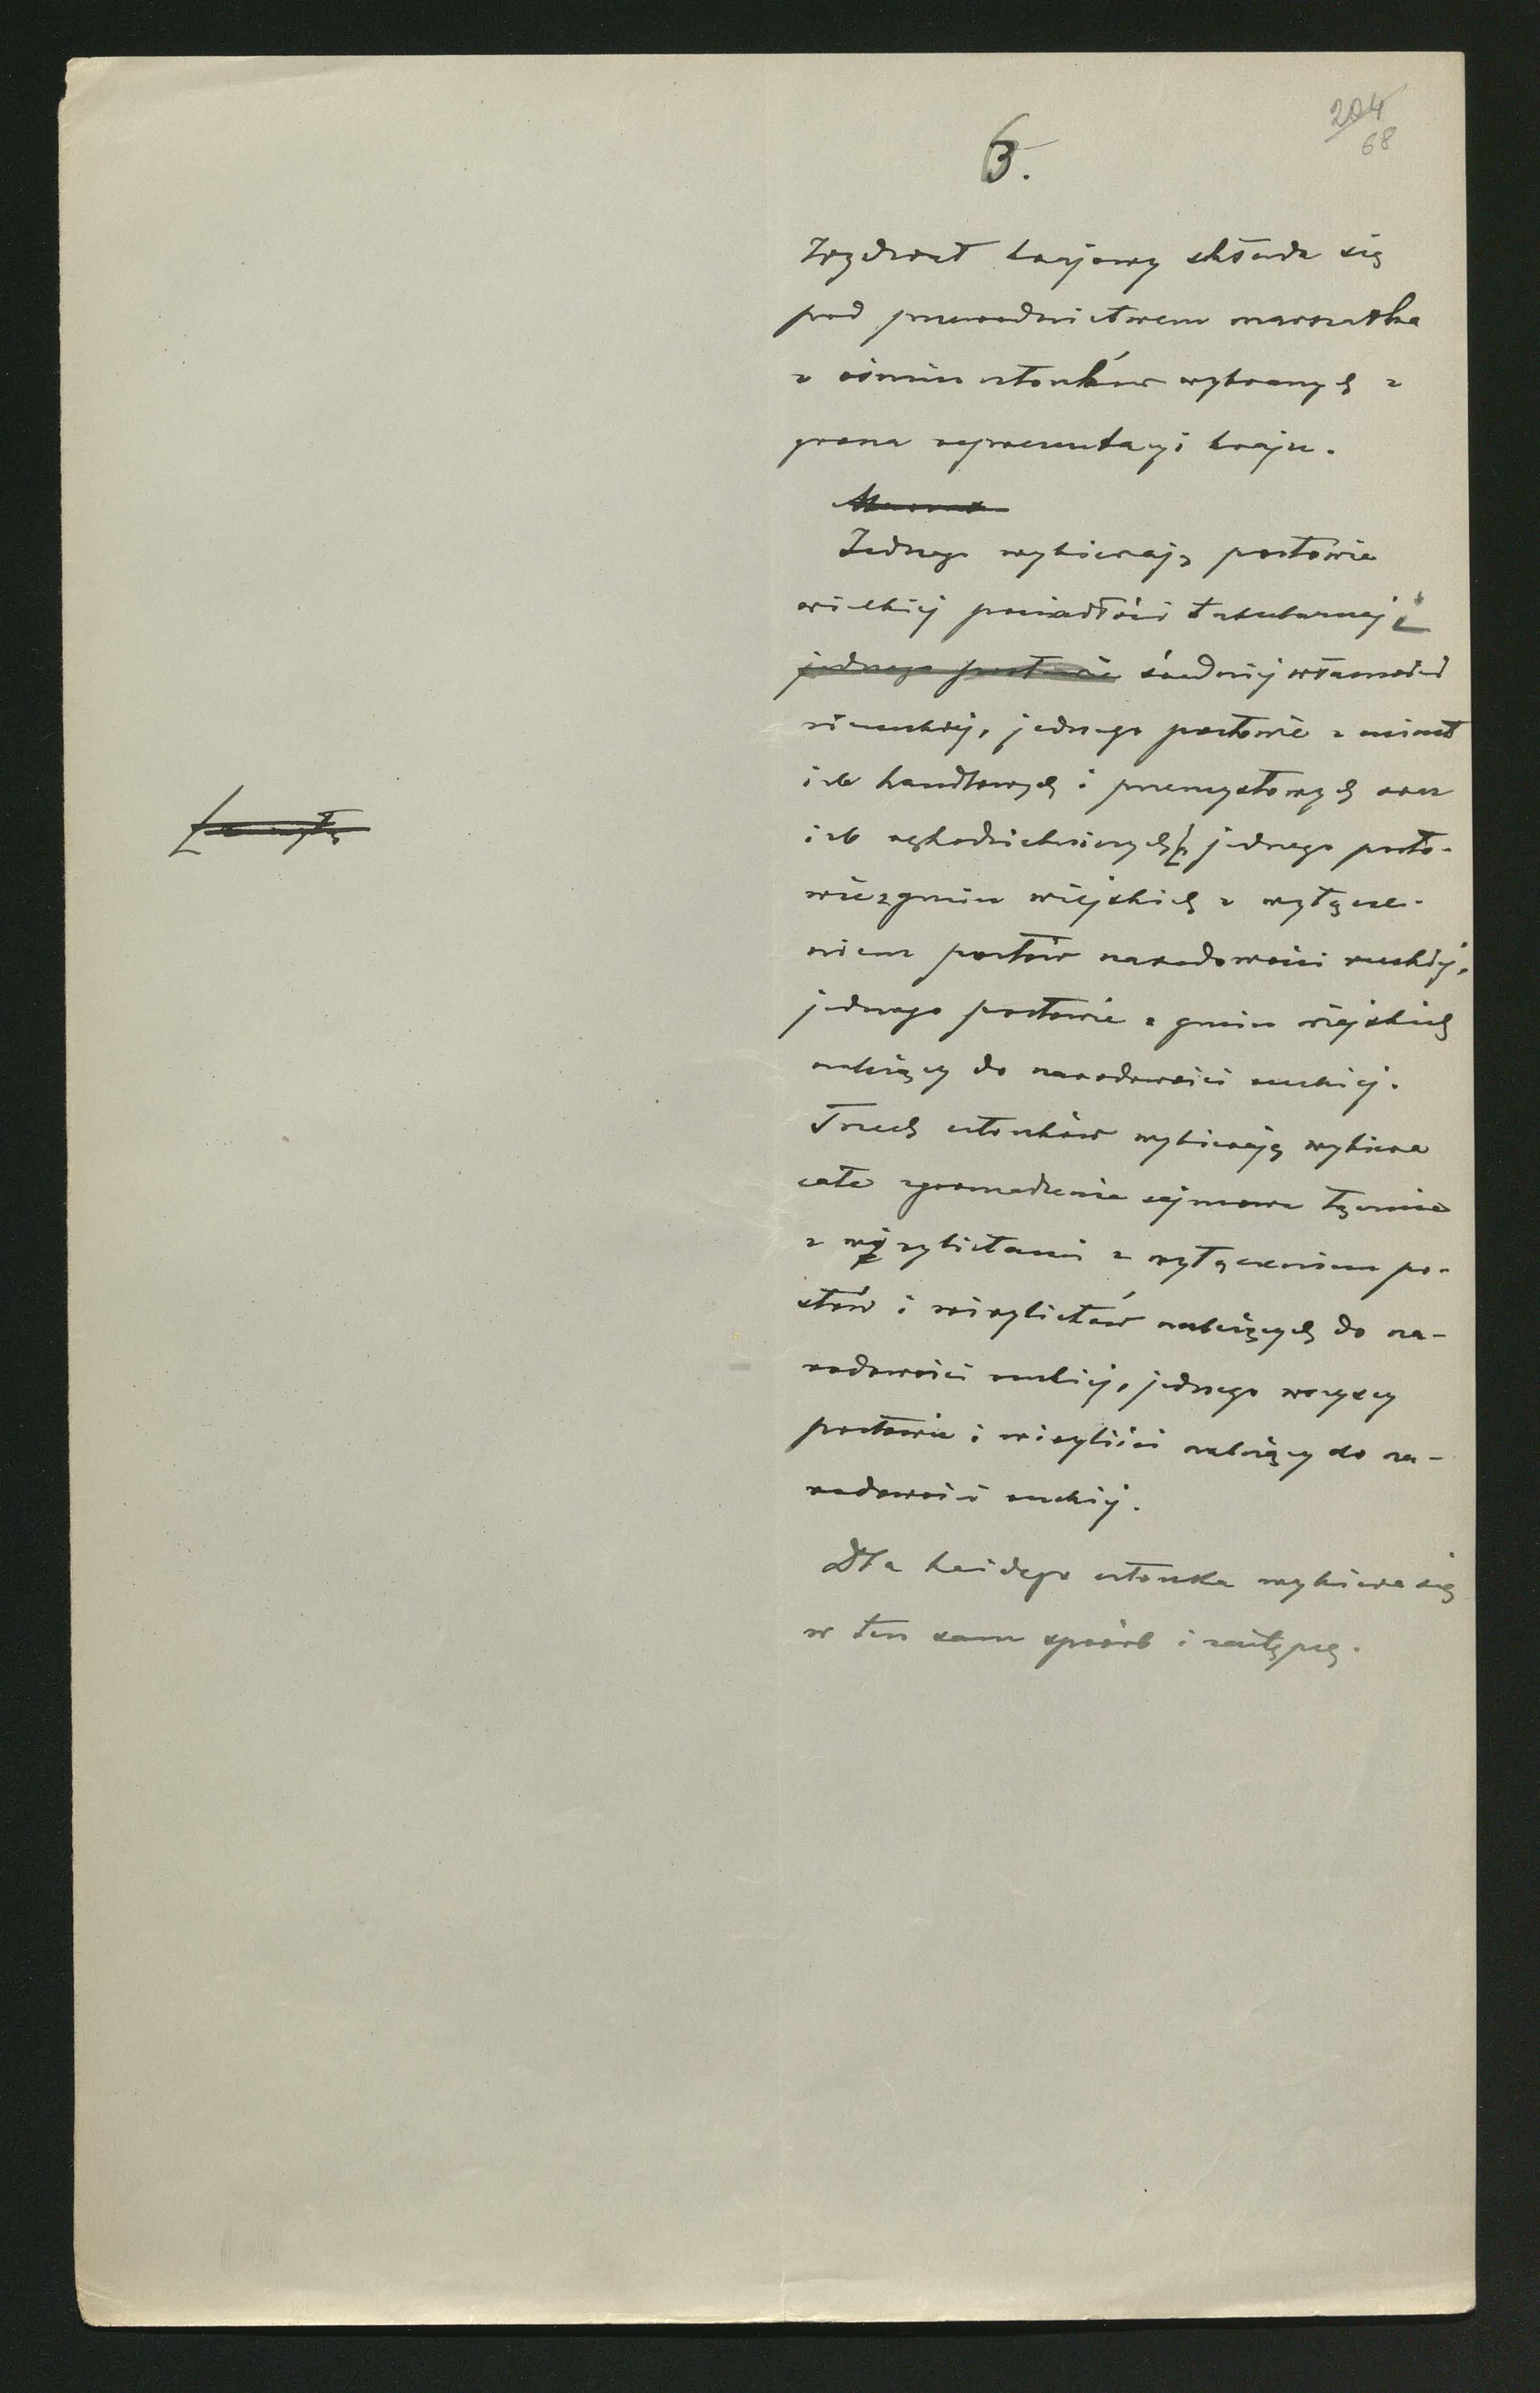 204
68
6.
Wydział krajowy składa się
pod przewodnictwem marszałka
z ośmiu członków wybranych z
grona reprezentacyi kraju.
Jednego wybierają posłowie
wielkiej posiadłości tabularnej i
jednego posłowie średniej własności
niemskiej, jednego posłowie z miast
izb handlowych i przemysłowych oraz
izb rękodzielniczych, jednego posło-
wie z gmin wiejskich z wyłącze-
niem posłów narodowości ruskiej,
jednego posłowie z gmin wiejskich
należący do narodowości ruskiej.
Trzech członków wybierają wybiera
całe zgromadzenie sejmowe łącznie
z wirylistami z wyłączeniem po-
słów i wirylistów należących do na-
rodowości ruskiej, jednego wszyscy
posłowie i wiryliści należący do na-
rodowości ruskiej.
Dla każdego członka wybiera się
w ten sam sposób i zastępcę.